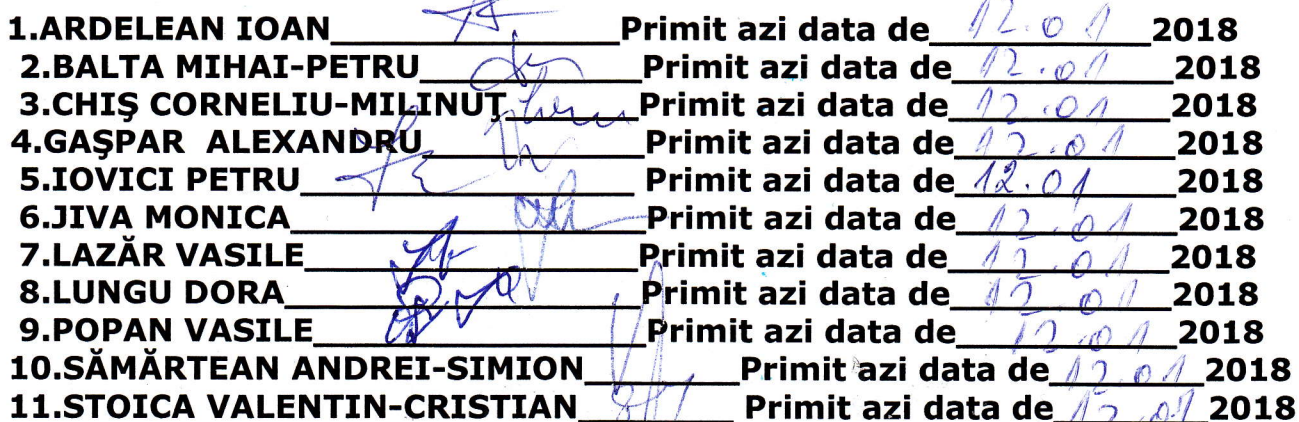 1.ARDELEAN IOAN Primit azi data de 12.01 2018
2.BALTA MIHAI-PETRU Primit azi data de 12.01 2018
3.CHIŞ CORNELIU-MILINUŢ Primit azi data de 12.01 2018
4.GAŞPAR ALEXANDRU Primit azi data de 12.01 2018
5.IOVICI PETRU Primit azi data de 12.01 2018
6.JIVA MONICA Primit azi data de 12.01 2018
7.LAZĂR VASILE Primit azi data de 12.01 2018
8.LUNGU DORA Primit azi data de 12.01 2018
9.POPAN VASILE Primit azi data de 12.01 2018
10.SĂMĂRTEAN ANDREI-SIMION Primit azi data de 12.01 2018
11.STOICA VALENTIN-CRISTIAN Primit azi data de 12.01 2018